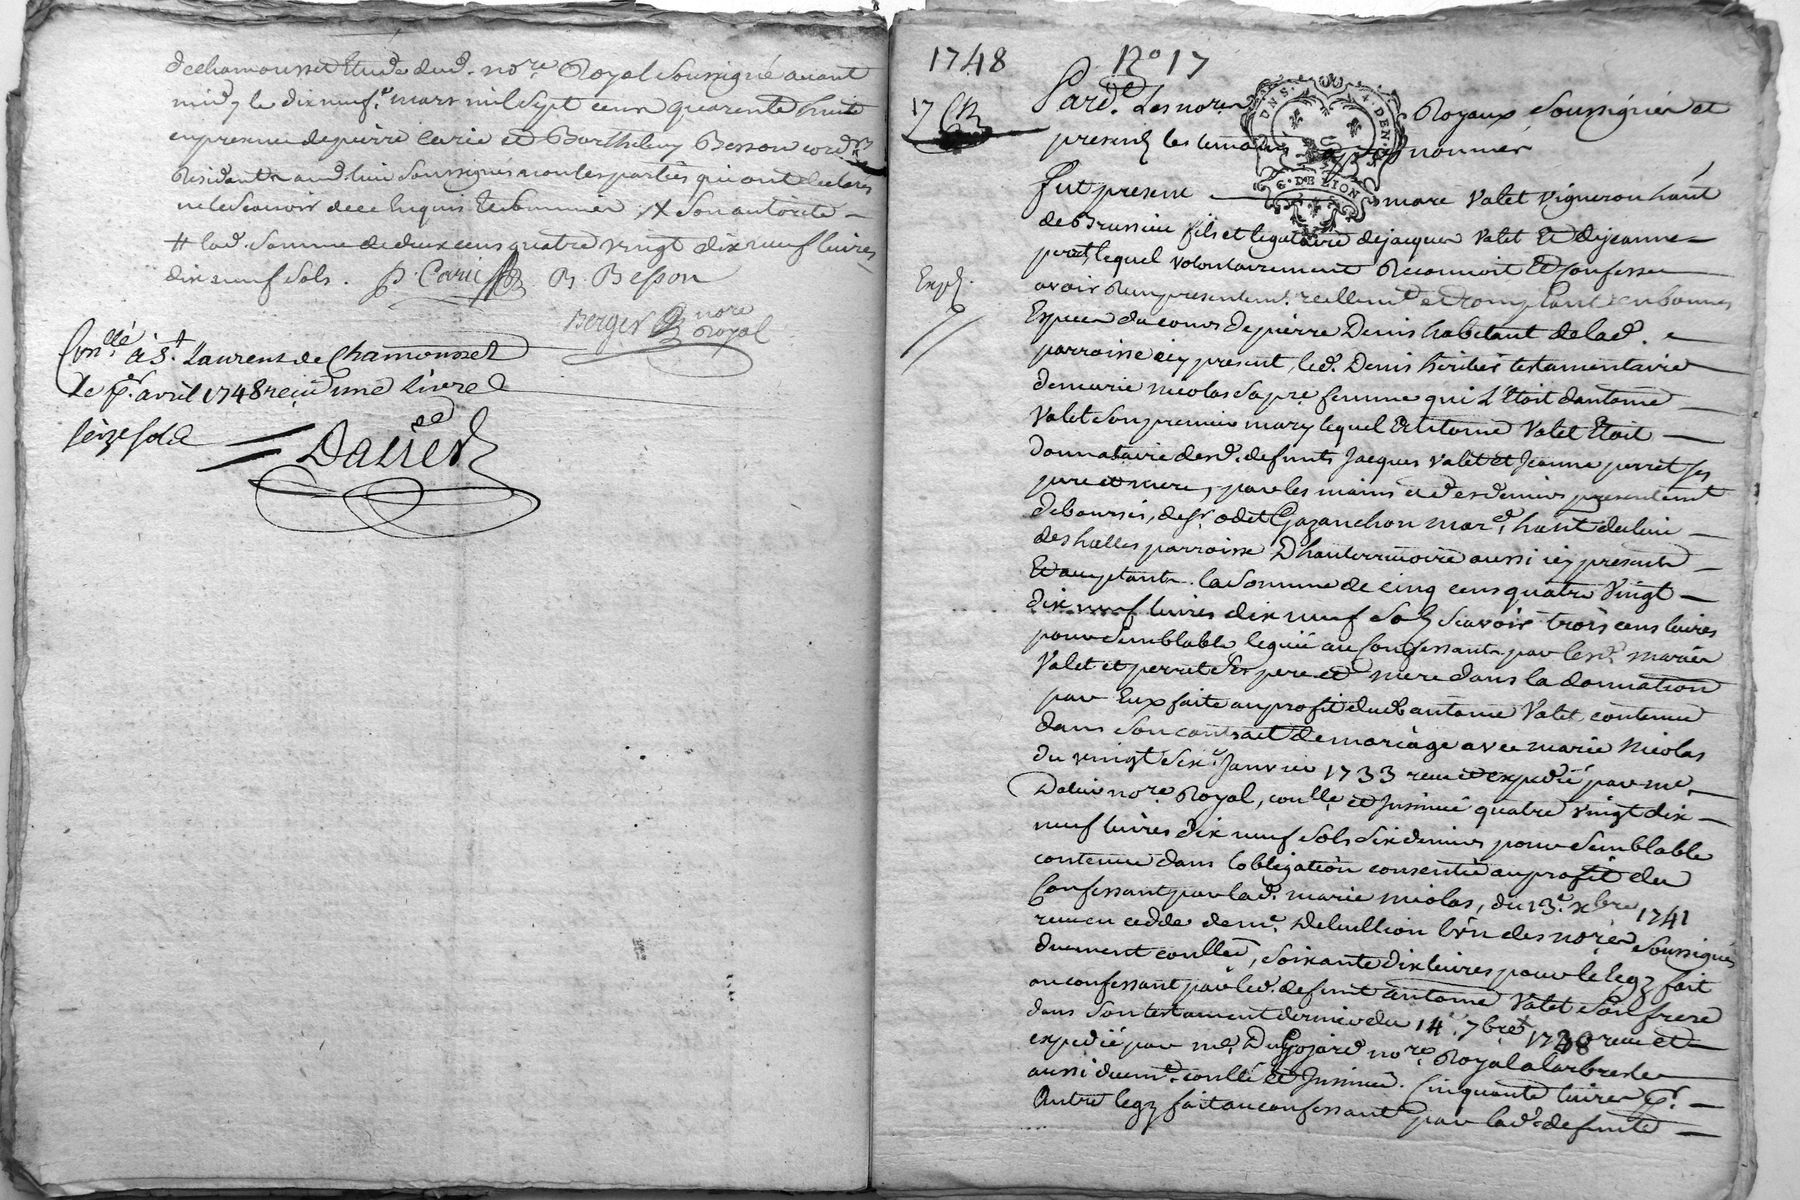 de chamousset Etude dud. nore. Royal Soussigné avant
midy le dix neuf.e mars mil Sept cens quarente huit
en presence de pierre Caric et Barthelemy Besson
Residants aud. lieu Soussignés non les parties qui ont declaré
ne le Scavoir de ce Enquis Et Sommés X Son autorité
# lad. Somme de deux cens quatre vingt dix neuf livres
dix neuf Sols. P. Caric B. Besson
Berger nore Royal
Conllé à St. Laurens de Chamousset
le pr. avril 1748 reçu une Livre
seize sols
Dalier
1748 No 17
17
Pard.t Les nores Royaux Soussignés et
presens les temoins apres nommés
Fut present marc Valet Vigneron hant
de Brussieu fils et legataire de jacques Valet Et de jeanne
perret, lequel volontairement Reconnoit Et Confesse
avoir Reçu presentemt. reellemt. et Comptant en bonnes
Especes du cours de pierre Denis habitant de lad.
parroisse icy present, led. Denis heritier testamentaire
de marie nicolas sa pre. femme qui L'Etoit d'antoine
Valet Son premier mary lequel Antoine Valet Etoit
donnataire desd. defunts Jacques Valet et Jeanne perret ses
pere et mere, par les mains et des deniers presentemt
deboursés, de sr. odet Gazanchon mard. hant du lieu
des halles parroisse D'hauterivoire aussi icy present
Et acceptant la Somme de cinq cens quatre Vingt
dix neuf livres dix neuf Sols Scavoir trois cens livres
pour Semblable leguée au Confessant par lesd. mariés
Valet et perret Ses pere et mere dans la donnation
par Eux faite au profit dud. antoine Valet contenue
dans Son contract de mariage avec marie Nicolas
du vingt Six.e Janvier 1733 receu et expedié par me.
Dalier nore. Royal, conllé et Insinué quatre vingt dix
neuf livres dix neuf Sols Six deniers pour Semblable
contenue dans l'obligation consentie au profit du
Confessant par lad. marie nicolas, du 13.e xbre 1741
receu en cedde de me. Debullion l'un des nores Soussignés
duement conllée, Soixante dix livres pour le legz fait
au confessant par led. defunt antoine Valet Son frere
dans Son testament dernier du 14.e 7bre 1738 receu et
expedié par me. Dugojard nore. Royal a larbresle
aussi duemt. conllé et Insinué. Cinquante livres pr.
Autre legz fait au confessant par lad. defunte
Expd.
G. DE LION